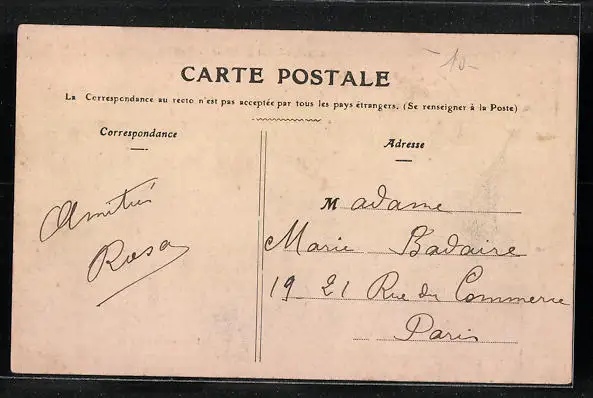 10-
CARTE POSTALE
La Correspondance au recto n'est pas acceptée par tous les pays étrangers. (Se renseigner à la Poste)
Correspondance
Amitiés
Rosa
Adresse
Madame
Marie Badaire
19 21 Rue du Commerce
Paris